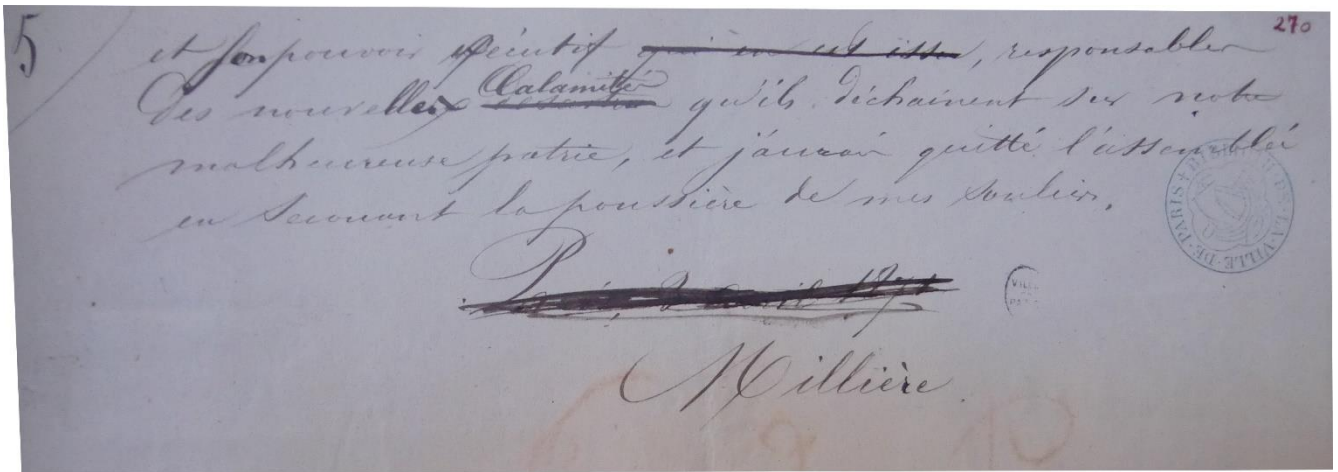 5
270
et son pouvoir exécutif qui en est issu, responsables
des nouvelles Calamités qu'ils déchainent sur notre
malheureuse patrie, et j'aurai quitté l'assemblée
en secouant la poussière de mes souliers.
Paris, 3 avril 1871
Millière
BIBLIOTH. DE LA VILLE DE PARIS
VILLE DE PARIS